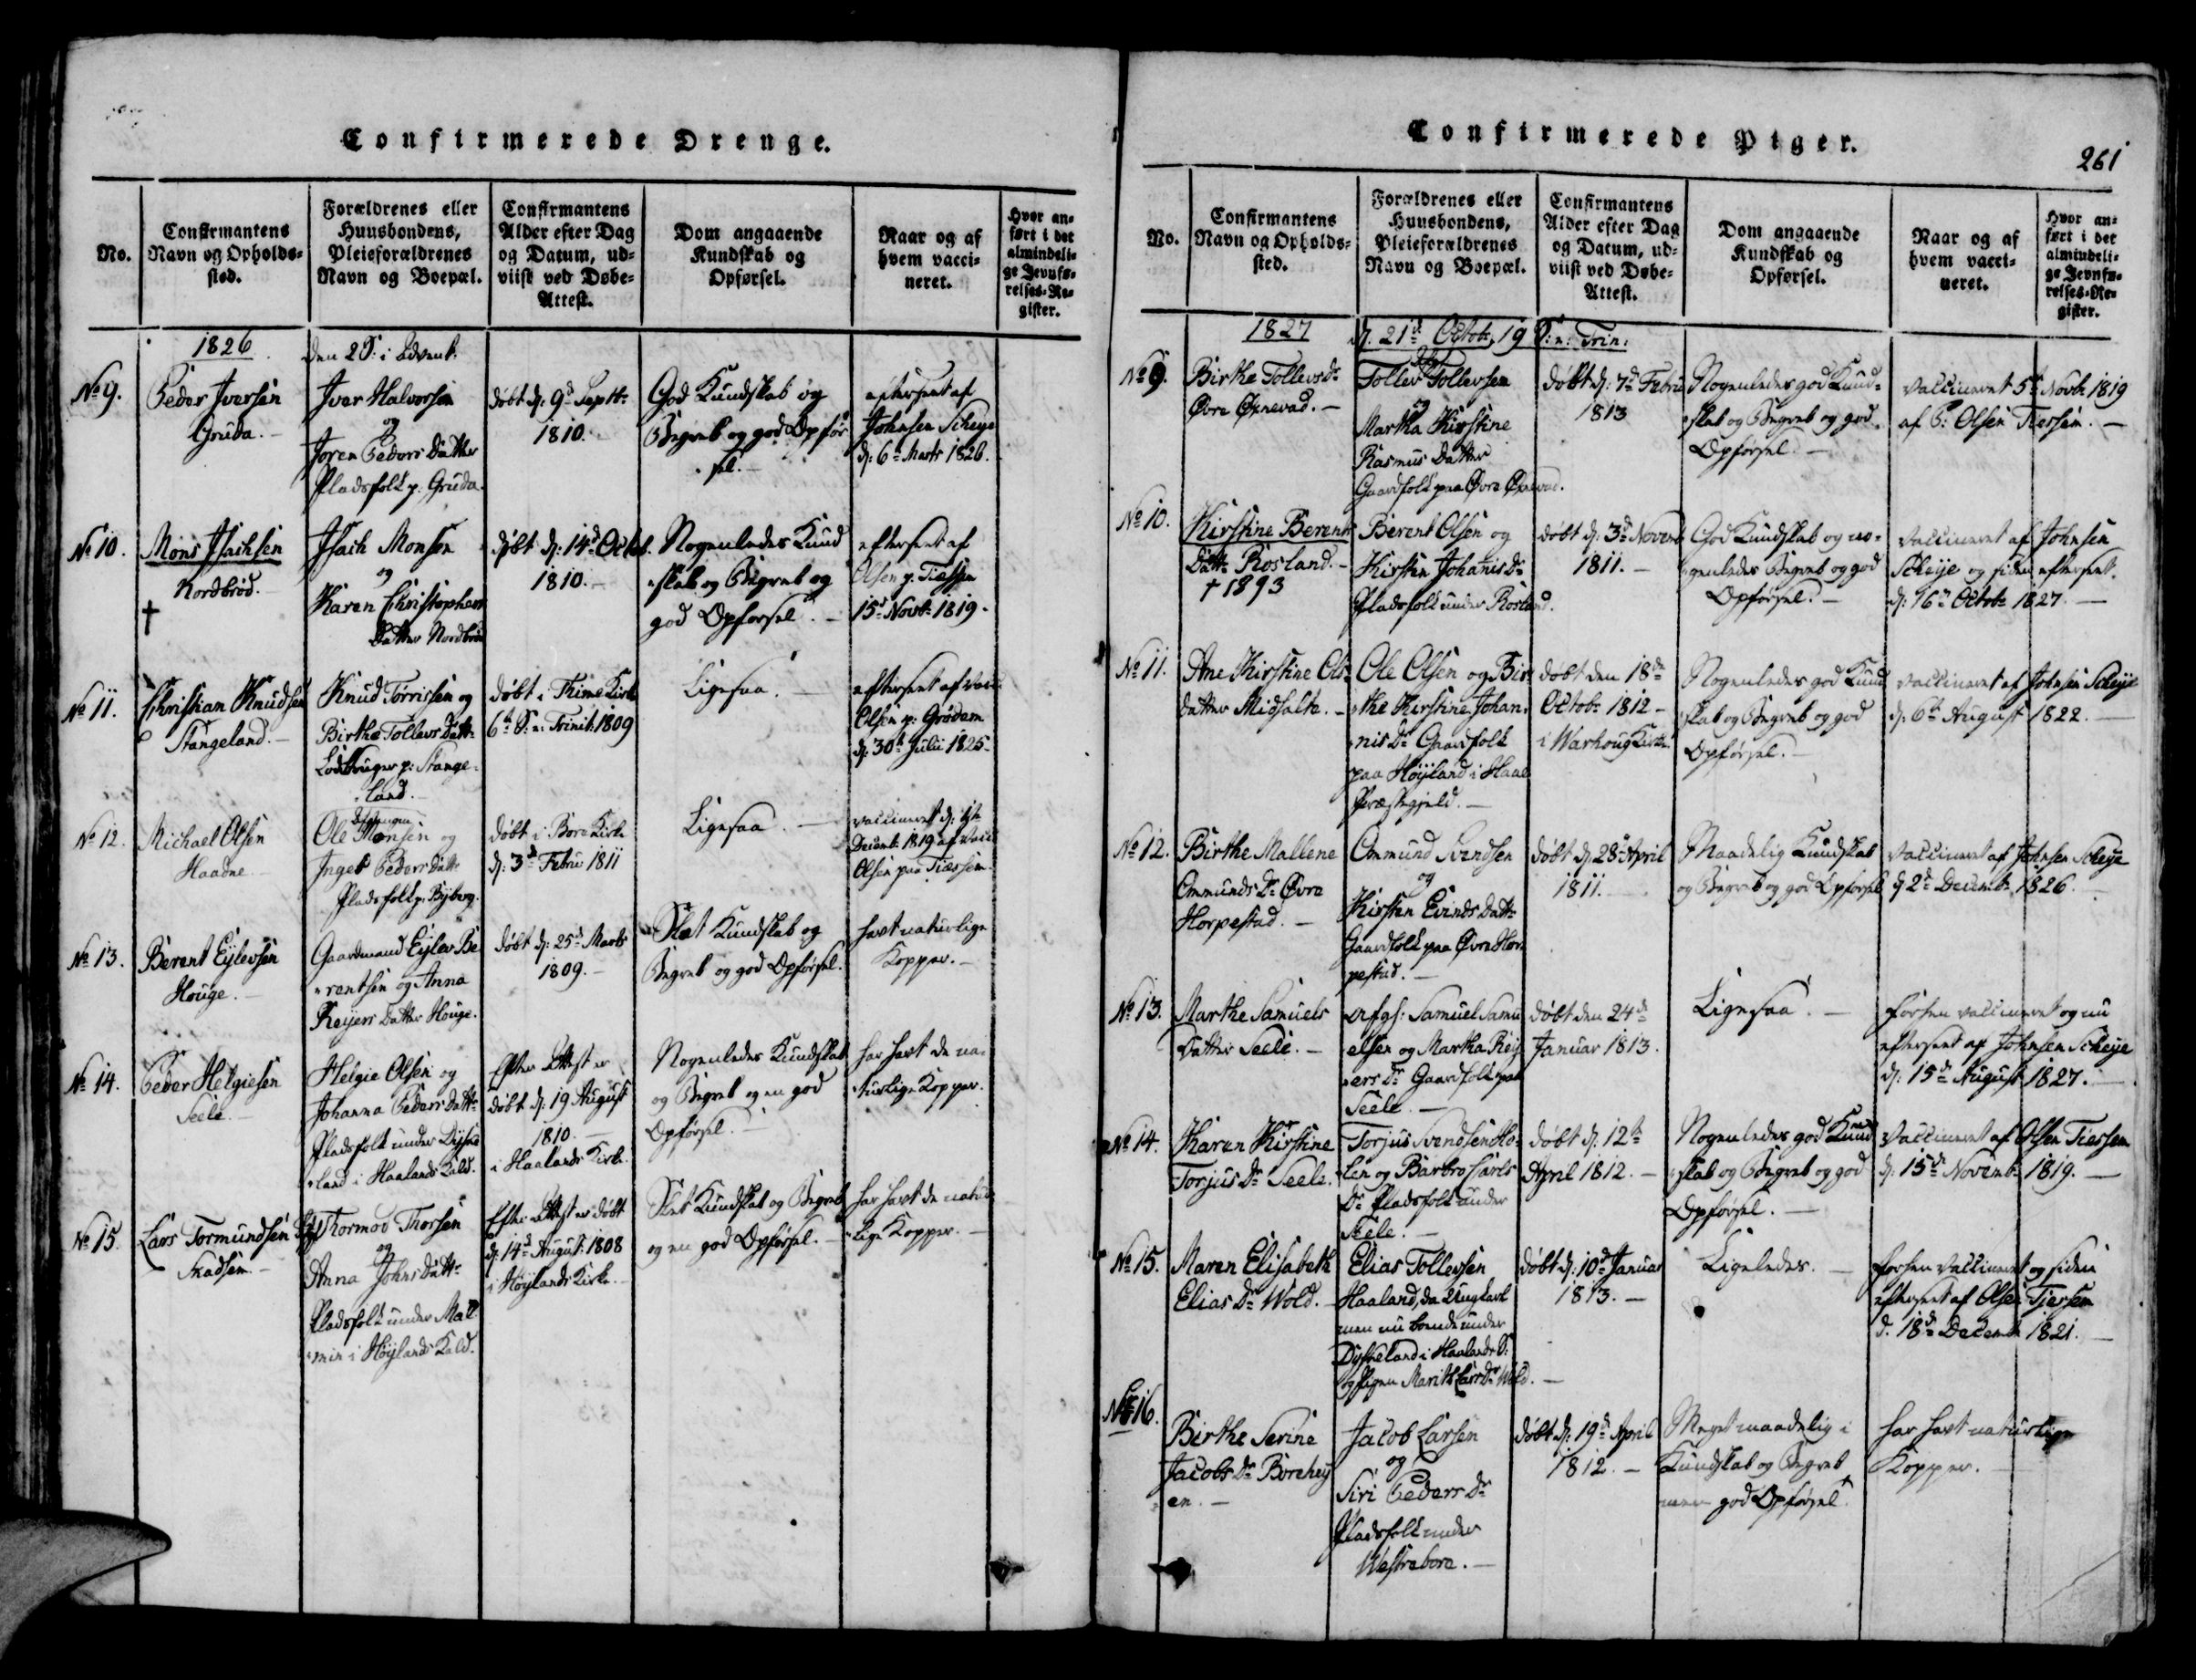 Confirmerede Drenge.
No.
Confirmantens
Navn og Opholds-
sted.
Forældrenes eller
Huusbondens,
Pleieforældrenes
Navn og Boepæl.
Confirmantens
Alder efter Dag
og Datum, ud-
viist ved Døbe-
Attest.
Dom angaaende
Kundskab og
Opførsel.
Naar og af
hvem vacci-
neret.
Hvor an-
ført i det
almindeli-
ge Jevnfø-
relses-Re-
gister.
1826
Den 2 S: i Advent.
No 9.
Peder Iversen
Gruda.
Iver Halvorsen
og
Joren Peders Datter
Pladsfolk p. Gruda.
døbt d: 9d Septbr
1810.
God Kundskab og
Begreb og god Opfør
sel.
efterseet af
Johnsen Scheye
d: 6 Marts 1826.
No 10.
Mons Isachsen
Nordbrød.
†
Isach Monsen
og
Karen Christophers
Datter Nordbrød
døbt d: 14d Octob.
1810.
Nogenledes Kund
skab og Begreb og
god Opførsel.
efterseet af
Olsen p. Tiessem
15d Novb: 1819.
No 11.
Christian Knudsen
Stangeland.
Knud Torrissen og
Birthe Tollevs Datt:
Lodbruger p: Stange-
land.
døbt i Thime Kirke
6te S. n: Trinit: 1809
Ligesaa.
efterseet af
Olsen p: Grødem
d: 30te Julii 1825.
No 12.
Michael Olsen
Haadne
Ole Monsen og
Ingeb Peders Datt:
Pladsfolk p. Byberg.
døbt i Bore Kirke
d: 3d Febru 1811
Ligesaa.
vaccineret d:
Decemb: 1819 af
Olsen paa Tiessem
No 13.
Berent Eylevsen
Houge.
Gaardmand Eylev Be
rentsen og Anna
Reyers Datter Houge.
døbt d: 25d Marts
1809.
Slet Kundskab og
Begreb og god Opførsel.
havt naturlige
Kopper.
No 14.
Peder Helgiesen
Seele.
Helgie Olsen og
Johanna Peders Datt:
Pladsfolk under Dysse
land i Haalands Kald.
Efter Attest er
døbt d: 19 August
1810.
i Haalands Kirke.
Nogenledes Kundskab
og Begreb og en god
Opførsel.
har havt de na-
turlige Kopper.
No 15.
Lars Tormundsen
Skadsem.
Thormod Thorsen
og
Anna Johns Datt:
Pladsfolk under Mal
min i Høylands Kald.
Efter Attest er døbt
d: 14d August: 1808
i Høylands Kirke.
Slet Kundskab og Begreb
og en god Opførsel.
har havt de natur
lige Kopper.
Confirmerede Piger.
261
No.
Confirmantens
Navn og Opholds-
sted.
Forældrenes eller
Huusbondens,
Pleieforældrenes
Navn og Boepæl.
Confirmantens
Alder efter Dag
og Datum, ud-
viist ved Døbe-
Attest.
Dom angaaende
Kundskab og
Opførsel.
Naar og af
hvem vacci-
neret.
Hvor an-
ført i det
almindeli-
ge Jevnfø-
relses-Re-
gister.
1827
d: 21d Octob: 19 S: n: Trin:
No 9.
Birthe Tollevs Dr
Øvre Øxnevad.
Tollev Tollevsen
og
Martha Kirstine
Rasmus Datter
Gaardfolk paa Øvre Øxnevad.
døbt d: 7d Febru
1813
Nogenledes god Kund-
skab og Begreb og god
Opførsel.
vaccineret 5d Novb: 1819
af P: Olsen Tiessem.
No 10.
Kirstine Berents
Datt: Rosland.
† 1893
Berent Olsen og
Kirsten Johanis Dr
Pladsfolk under Rosland.
døbt d: 3d Novemb
1811.
God Kundskab og no-
genledes Begreb og god
Opførsel.
vaccineret af Johnsen
Scheye og siden efterseet.
d: 16d Octob: 1827.
No 11.
Ane Kirstine Ols-
datter Midsalte.
Ole Olsen og Bir-
the Kirstine Johan-
nis Dr Gaardfolk
paa Høyland i Haae
Præstegjeld.
døbt den 18de
Octobr 1812
i Warhoug Kirke.
Nogenledes god Kund
skab og Begreb og god
Opførsel.
vaccineret af Johnsen Scheye
d: 6te August 1822.
No 12.
Birthe Mallene
Ommunds Dr Øvre
Horpestad.
Ommund Svendsen
og
Kirsten Evinds Datt:
Gaardfolk paa Øvre Hor
pestad.
døbt d: 28d April
1811.
Maadelig Kundskab
og Begreb og god Opførsel
vaccineret af Johnsen Scheye
d: 2d Decemb: 1826.
No 13.
Marthe Samuels
Datter Seele.
Samuel Samu
elsen og Martha Rey
ers Dr Gaardfolk paa
Seele.
døbt den 24de
Januar 1813.
Ligesaa.
forhen vaccineret og nu
efterseet af Johnsen Scheye
d: 15de August 1827.
No 14.
Karen Kirstine
Torjus Dr Seele.
Torjus Svendsen Ho-
len og Barbro Carls
Dr Pladsfolk under
Seele.
døbt d: 12te
April 1812.
Nogenledes god Kund
skab og Begreb og god
Opførsel.
vaccineret af Olsen Tiessem
d: 15de Novemb: 1819.
No 15.
Maren Elisabeth
Elias Dr Wold.
Elias Tollevsen
Haaland, da Ungkarl
men nu boende under
Dysseland i Haalands S:
og Pigen Marith Lars Dr Wold.
døbt d: 10d Januar
1813.
Ligeledes.
forhen vaccineret og siden
efterseet af Olsen Tjessem
d. 18d Decemb: 1821.
No 16.
Birthe Serine
Jacobs Dr Borehey
en.
Jacob Larsen
og
Siri Peders Dr
Pladsfolk under
Westrebore.
døbt d: 19d April
1812.
Meget maadelig i
Kundskab og Begreb
men god Opførsel.
har havt naturlige
Kopper.